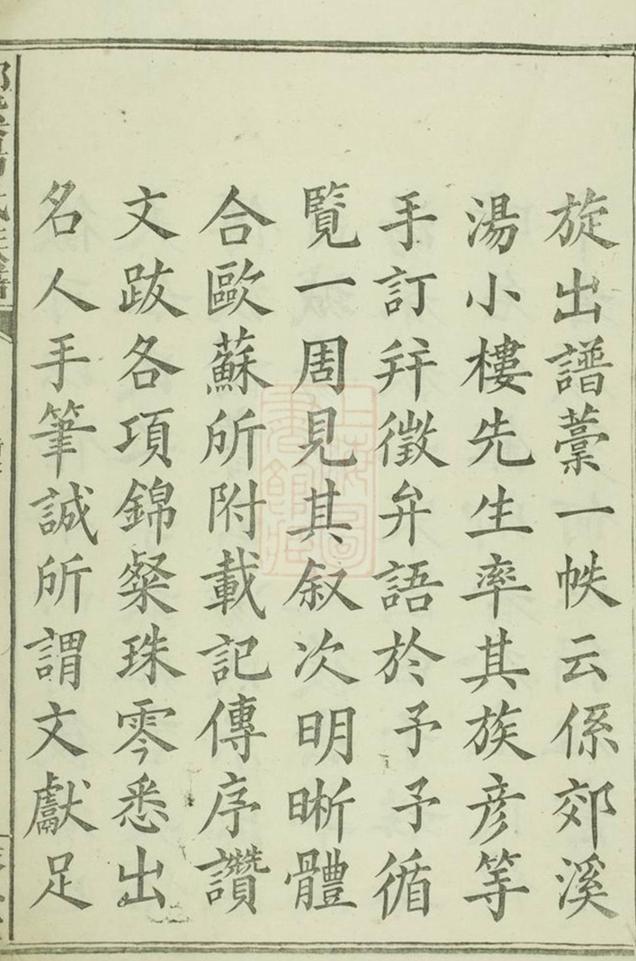 旋出譜藁一帙云係郊溪
湯小樓先生率其族彦等
手訂幷徵弁語於予予循
覽一周見其叙次明晰體
合歐蘇所附載記傳序讚
文跋各項錦粲珠零悉出
名人手筆誠所謂文獻足